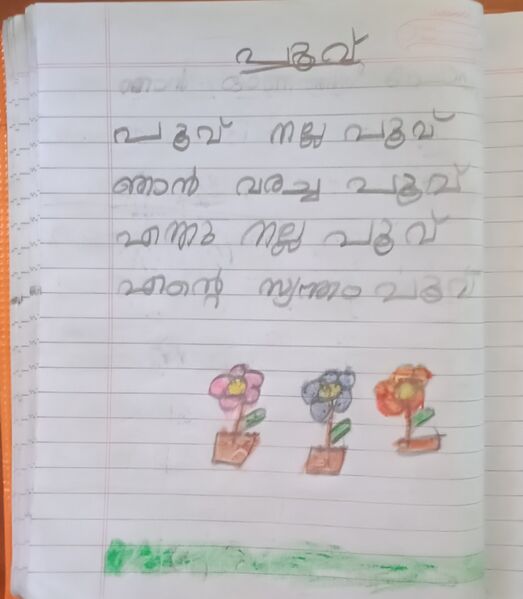 പൂവ്
പൂവ് നല്ല പൂവ്
ഞാൻ വരച്ച പൂവ്
എന്തു നല്ല പൂവ്
എന്റെ സ്വന്തം പൂവ്